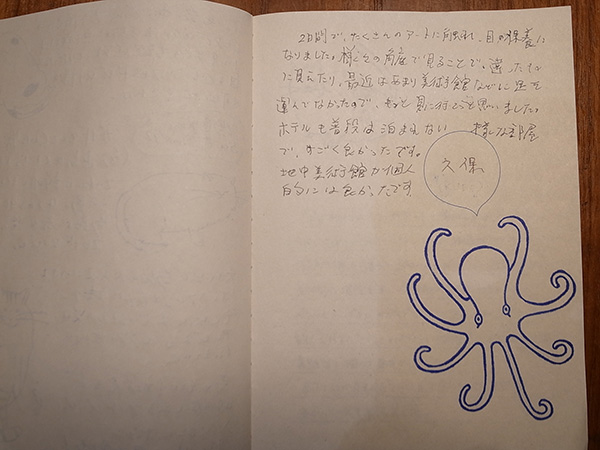 2日間で、たくさんのアートに触れ、目の保養に
なりました。様々な角度で見ることで、違ったように
に見えたり、最近はあまり美術館などに足を
運んでなかったので、もっと見に行こうと思いました。
ホテルも普段は泊まれない 様な部屋
で、すごく良かったです。
地中美術館が個人
的には良かったです。
久保